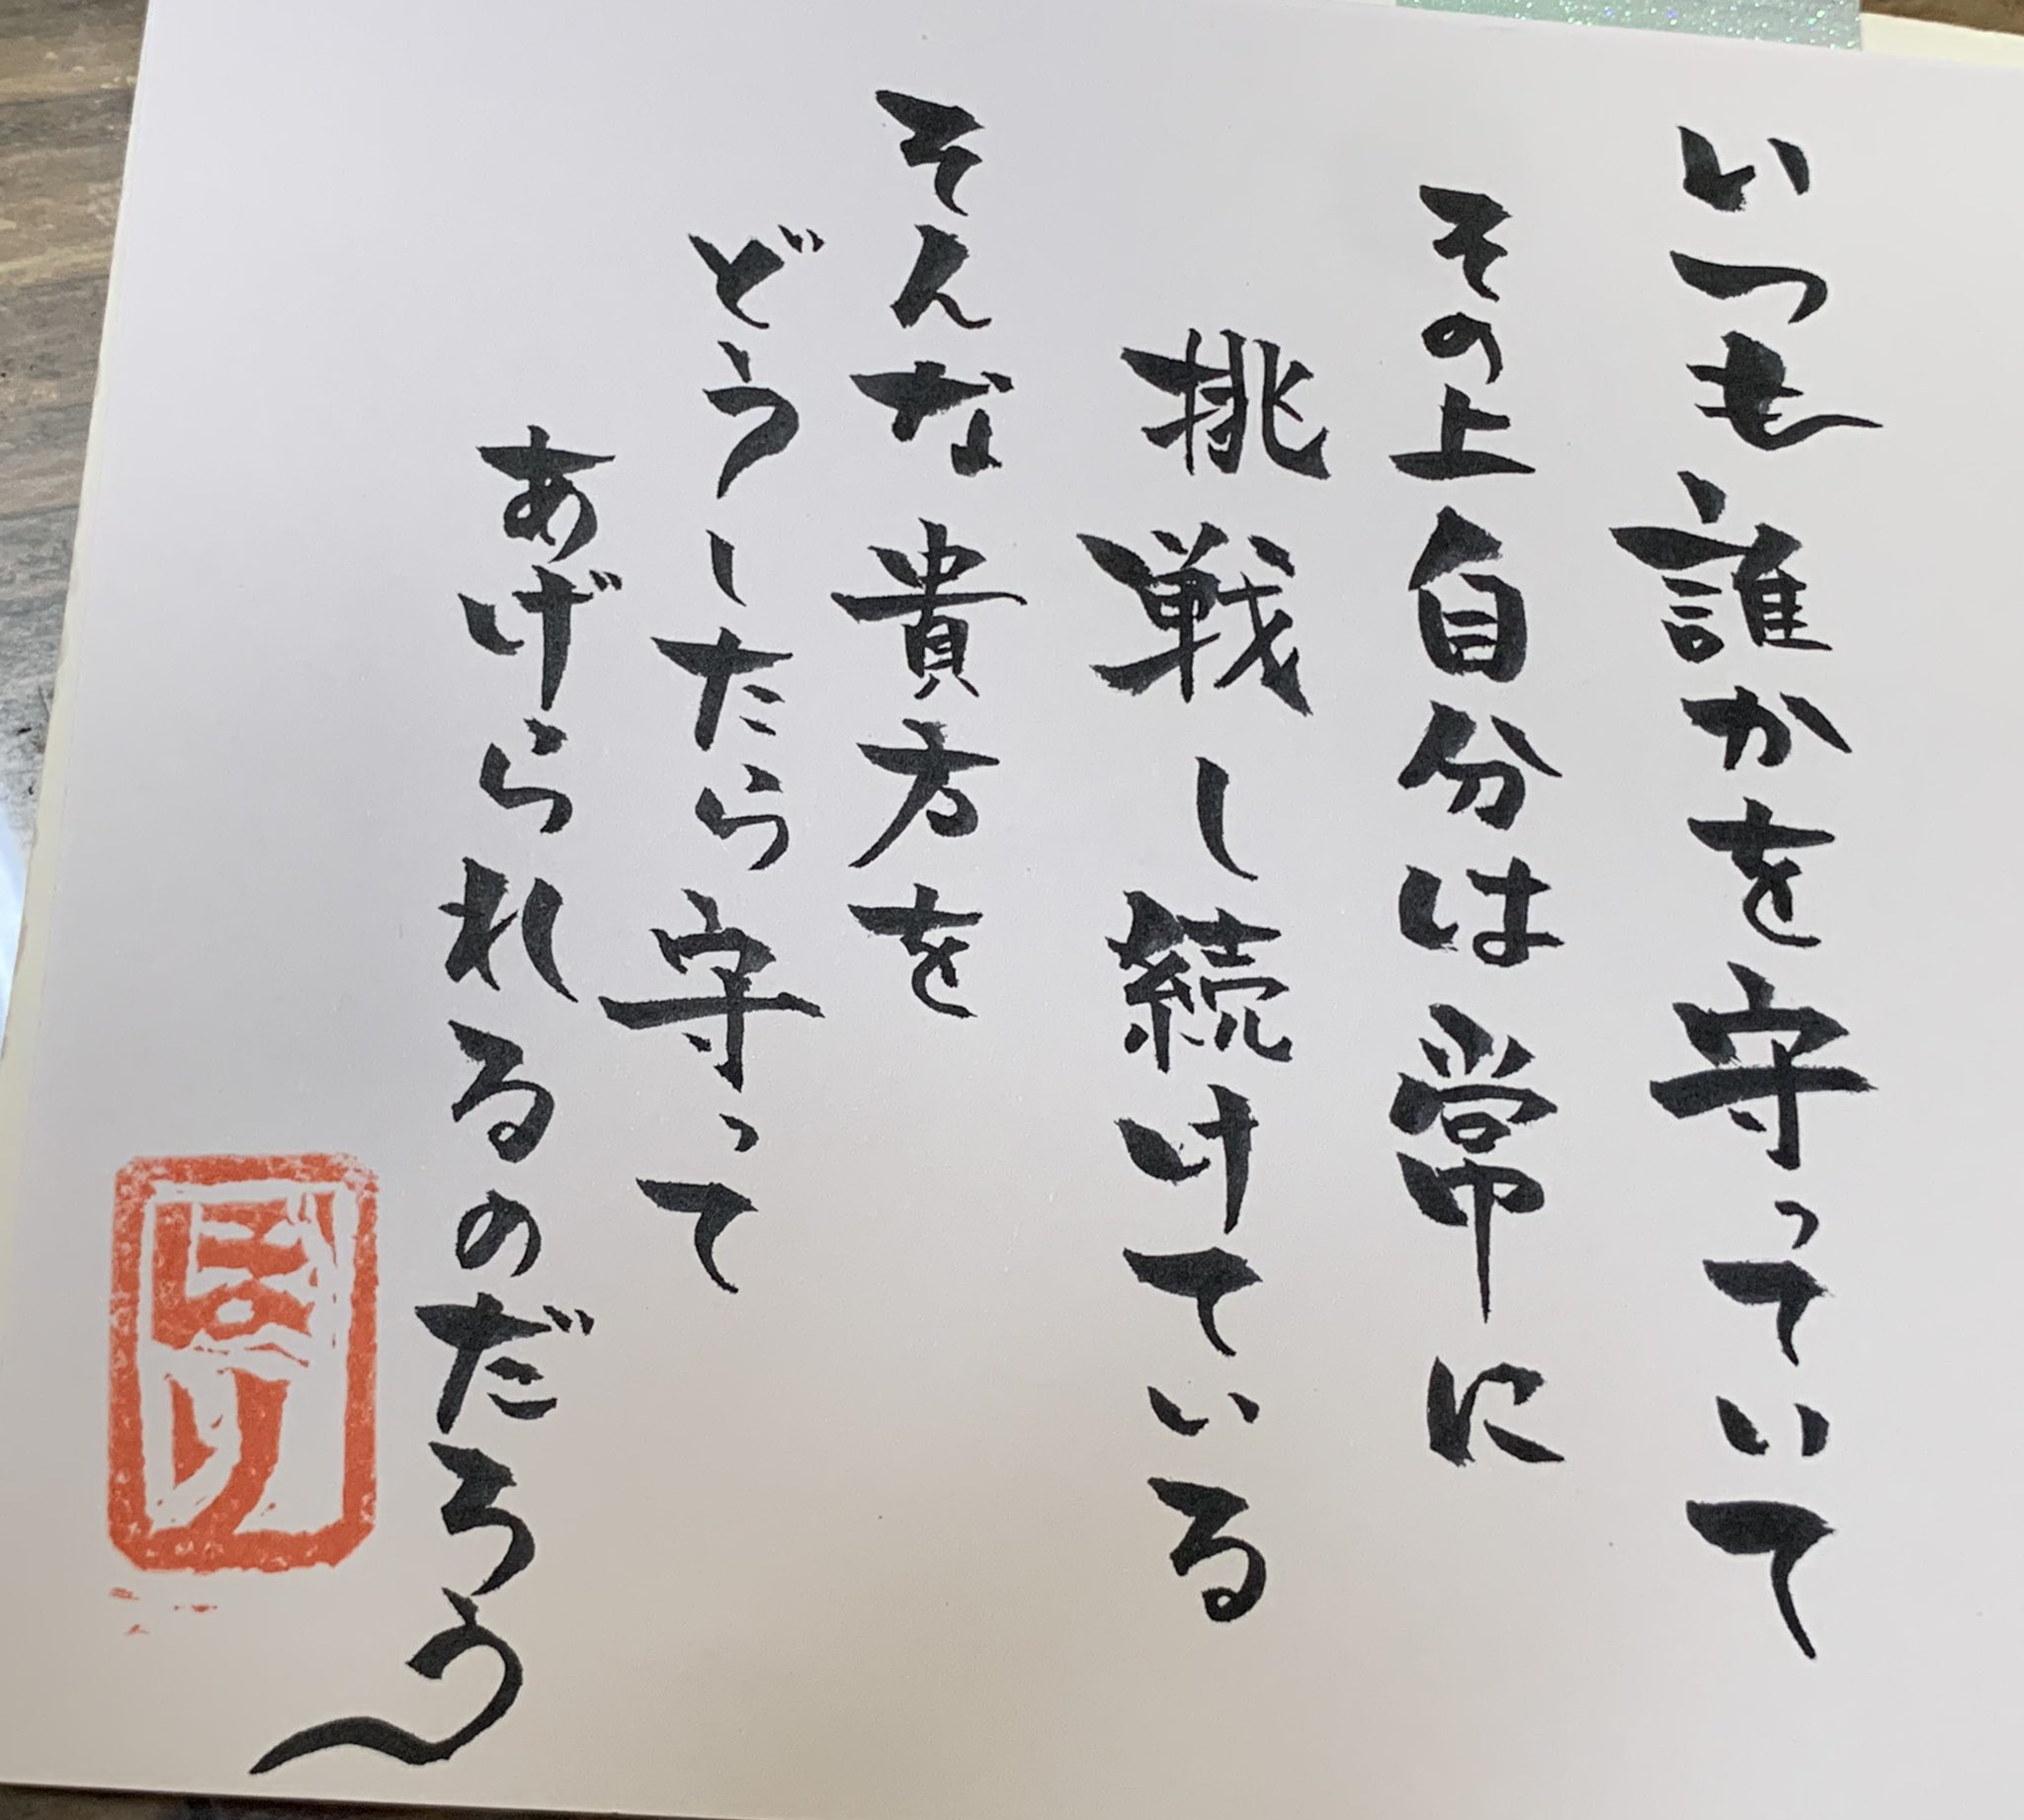 いつも誰かを守っていて
その上自分は常に
挑戦し続けている
そんな貴方を
どうしたら守って
あげられるのだろう